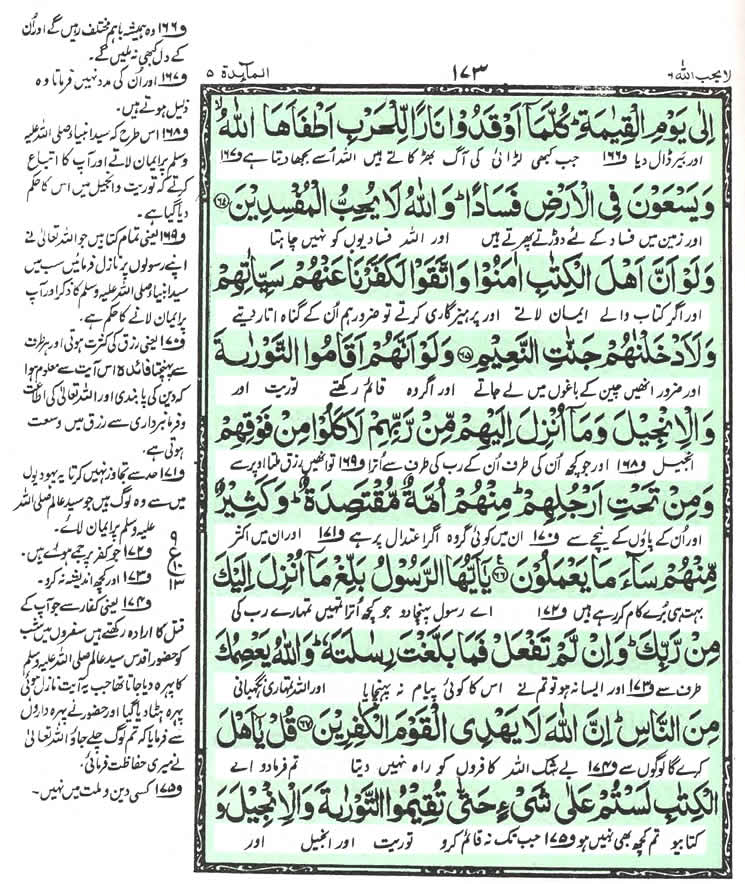 لایحب اللہ ۶
۱۷۳
المآىدة ۵
اِلٰى يَوْمِ الْقِيٰمَةِ ؕ كُلَّمَاۤ اَوْقَدُوْا نَارًا لِّلْحَرْبِ اَطْفَاَهَا اللّٰهُ ۙ
اور بیر ڈال دیا و۱۶۶ جب کبھی لڑائی کی آگ بھڑکاتے ہیں اللہ اُسے بجھا دیتا ہے و۱۶۷
وَ يَسْعَوْنَ فِى الْاَرْضِ فَسَادًا ؕ وَ اللّٰهُ لَا يُحِبُّ الْمُفْسِدِيْنَ ﴿۶۴﴾
اور زمین میں فساد کے لئے دوڑتے پھرتے ہیں اور اللہ فسادیوں کو نہیں چاہتا
وَ لَوْ اَنَّ اَهْلَ الْكِتٰبِ اٰمَنُوْا وَ اتَّقَوْا لَكَفَّرْنَا عَنْهُمْ سَيِّاٰتِهِمْ
اور اگر کتاب والے ایمان لاتے اور پرہیزگاری کرتے تو ضرور ہم اُن کے گناہ اتار دیتے
وَ لَاَدْخَلْنٰهُمْ جَنّٰتِ النَّعِيْمِ ﴿۶۵﴾ وَ لَوْ اَنَّهُمْ اَقَامُوا التَّوْرٰىةَ
اور ضرور انھیں چین کے باغوں میں لے جاتے اور اگر وہ قائم رکھتے توریت اور
وَ الْاِنْجِيْلَ وَ مَاۤ اُنْزِلَ اِلَيْهِمْ مِّنْ رَّبِّهِمْ لَاَكَلُوْا مِنْ فَوْقِهِمْ
انجیل و۱۶۸ اور جو کچھ اُن کی طرف اُن کے رب کی طرف سے اُترا و۱۶۹ تو انھیں رزق ملتا اوپر سے
وَ مِنْ تَحْتِ اَرْجُلِهِمْ ؕ مِنْهُمْ اُمَّةٌ مُّقْتَصِدَةٌ ؕ وَ كَثِيْرٌ
اور اُن کے پاؤں کے نیچے سے و۱۷۰ ان میں کوئی گروہ اگر اعتدال پر ہے و۱۷۱ اور ان میں اکثر
مِّنْهُمْ سَآءَ مَا يَعْمَلُوْنَ ﴿۶۶﴾ يٰۤاَيُّهَا الرَّسُوْلُ بَلِّغْ مَاۤ اُنْزِلَ اِلَيْكَ
بہت ہی بُرے کام کر رہے ہیں و۱۷۲ اے رسول پہنچا دو جو کچھ اُترا تمہیں تمہارے رب کی
مِنْ رَّبِّكَ ؕ وَ اِنْ لَّمْ تَفْعَلْ فَمَا بَلَّغْتَ رِسَالَتَهٗ ؕ وَ اللّٰهُ يَعْصِمُكَ
طرف سے و۱۷۳ اور ایسا نہ ہو تو تم نے اس کا کوئی پیام نہ پہنچایا اور اللہ تمہاری نگہبانی
مِنَ النَّاسِ ؕ اِنَّ اللّٰهَ لَا يَهْدِى الْقَوْمَ الْكٰفِرِيْنَ ﴿۶۷﴾ قُلْ يٰۤاَهْلَ
کرے گا لوگوں سے و۱۷۴ بے شک اللہ کافروں کو راہ نہیں دیتا تم فرما دو اے
الْكِتٰبِ لَسْتُمْ عَلٰى شَىْءٍ حَتّٰى تُقِيْمُوا التَّوْرٰىةَ وَ الْاِنْجِيْلَ وَ
کتابیو تم کچھ بھی نہیں ہو و۱۷۵ جب تک نہ قائم کرو توریت اور انجیل اور
و۱۶۶ وہ ہمیشہ باہم مختلف رہیں گے اور اُن
کے دل کبھی نہ ملیں گے۔
و۱۶۷ اور اُن کی مدد نہیں فرماتا وہ
ذلیل ہوتے ہیں۔
و۱۶۸ اس طرح کہ سید انبیاء صلی اللہ علیہ
وسلم پر ایمان لاتے اور آپ کا اتباع
کرتے کہ توریت و انجیل میں اس کا حکم
دیا گیا ہے۔
و۱۶۹ یعنی تمام کتابیں جو اللہ تعالیٰ نے
اپنے رسولوں پر نازل فرمائیں سب میں
سید انبیاء صلی اللہ علیہ وسلم کا ذکر اور آپ
پر ایمان لانے کا حکم ہے۔
و۱۷۰ یعنی رزق کی کثرت ہوتی اور ہر طرف
سے پہنچتا فائدہ اس آیت سے معلوم ہوا
کہ دین کی پابندی اور اللہ تعالیٰ کی اطاعت
و فرمانبرداری سے رزق میں وسعت
ہوتی ہے۔
و۱۷۱ حد سے تجاوز نہیں کرتا یہ یہودیوں
میں سے وہ لوگ ہیں جو سید عالم صلی اللہ
علیہ وسلم پر ایمان لائے۔
و۱۷۲ جو کفر پر جمے ہوئے ہیں۔
و۱۷۳ اور کچھ اندیشہ نہ کرو۔
و۱۷۴ یعنی کفار سے جو آپ کے
قتل کا ارادہ رکھتے ہیں سفروں میں شب
کو حضور اقدس سید عالم صلی اللہ علیہ وسلم
کا پہرہ دیا جاتا تھا جب یہ آیت نازل ہوئی
پہرہ ہٹا دیا گیا اور حضور نے پہرہ داروں
سے فرمایا کہ تم لوگ چلے جاؤ اللہ تعالیٰ
نے میری حفاظت فرمائی۔
و۱۷۵ کسی دین و ملت میں نہیں۔
۹
ع
۱۰
۱۳